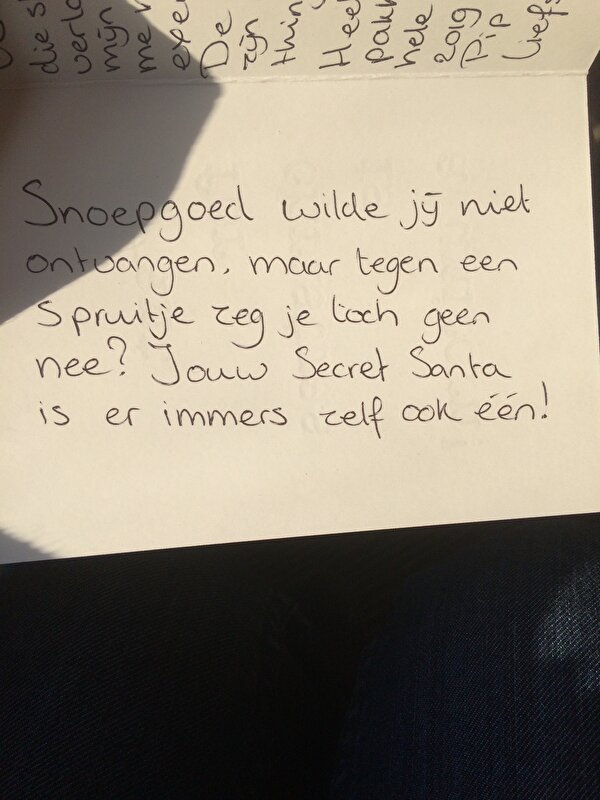 die
mijn
me
De
zijn
Heel
hele
2019
Pip
Liefs
Snoepgoed wilde jij niet
ontvangen, maar tegen een
spruitje zeg je toch geen
nee? Jouw Secret Santa
is er immers zelf ook één!